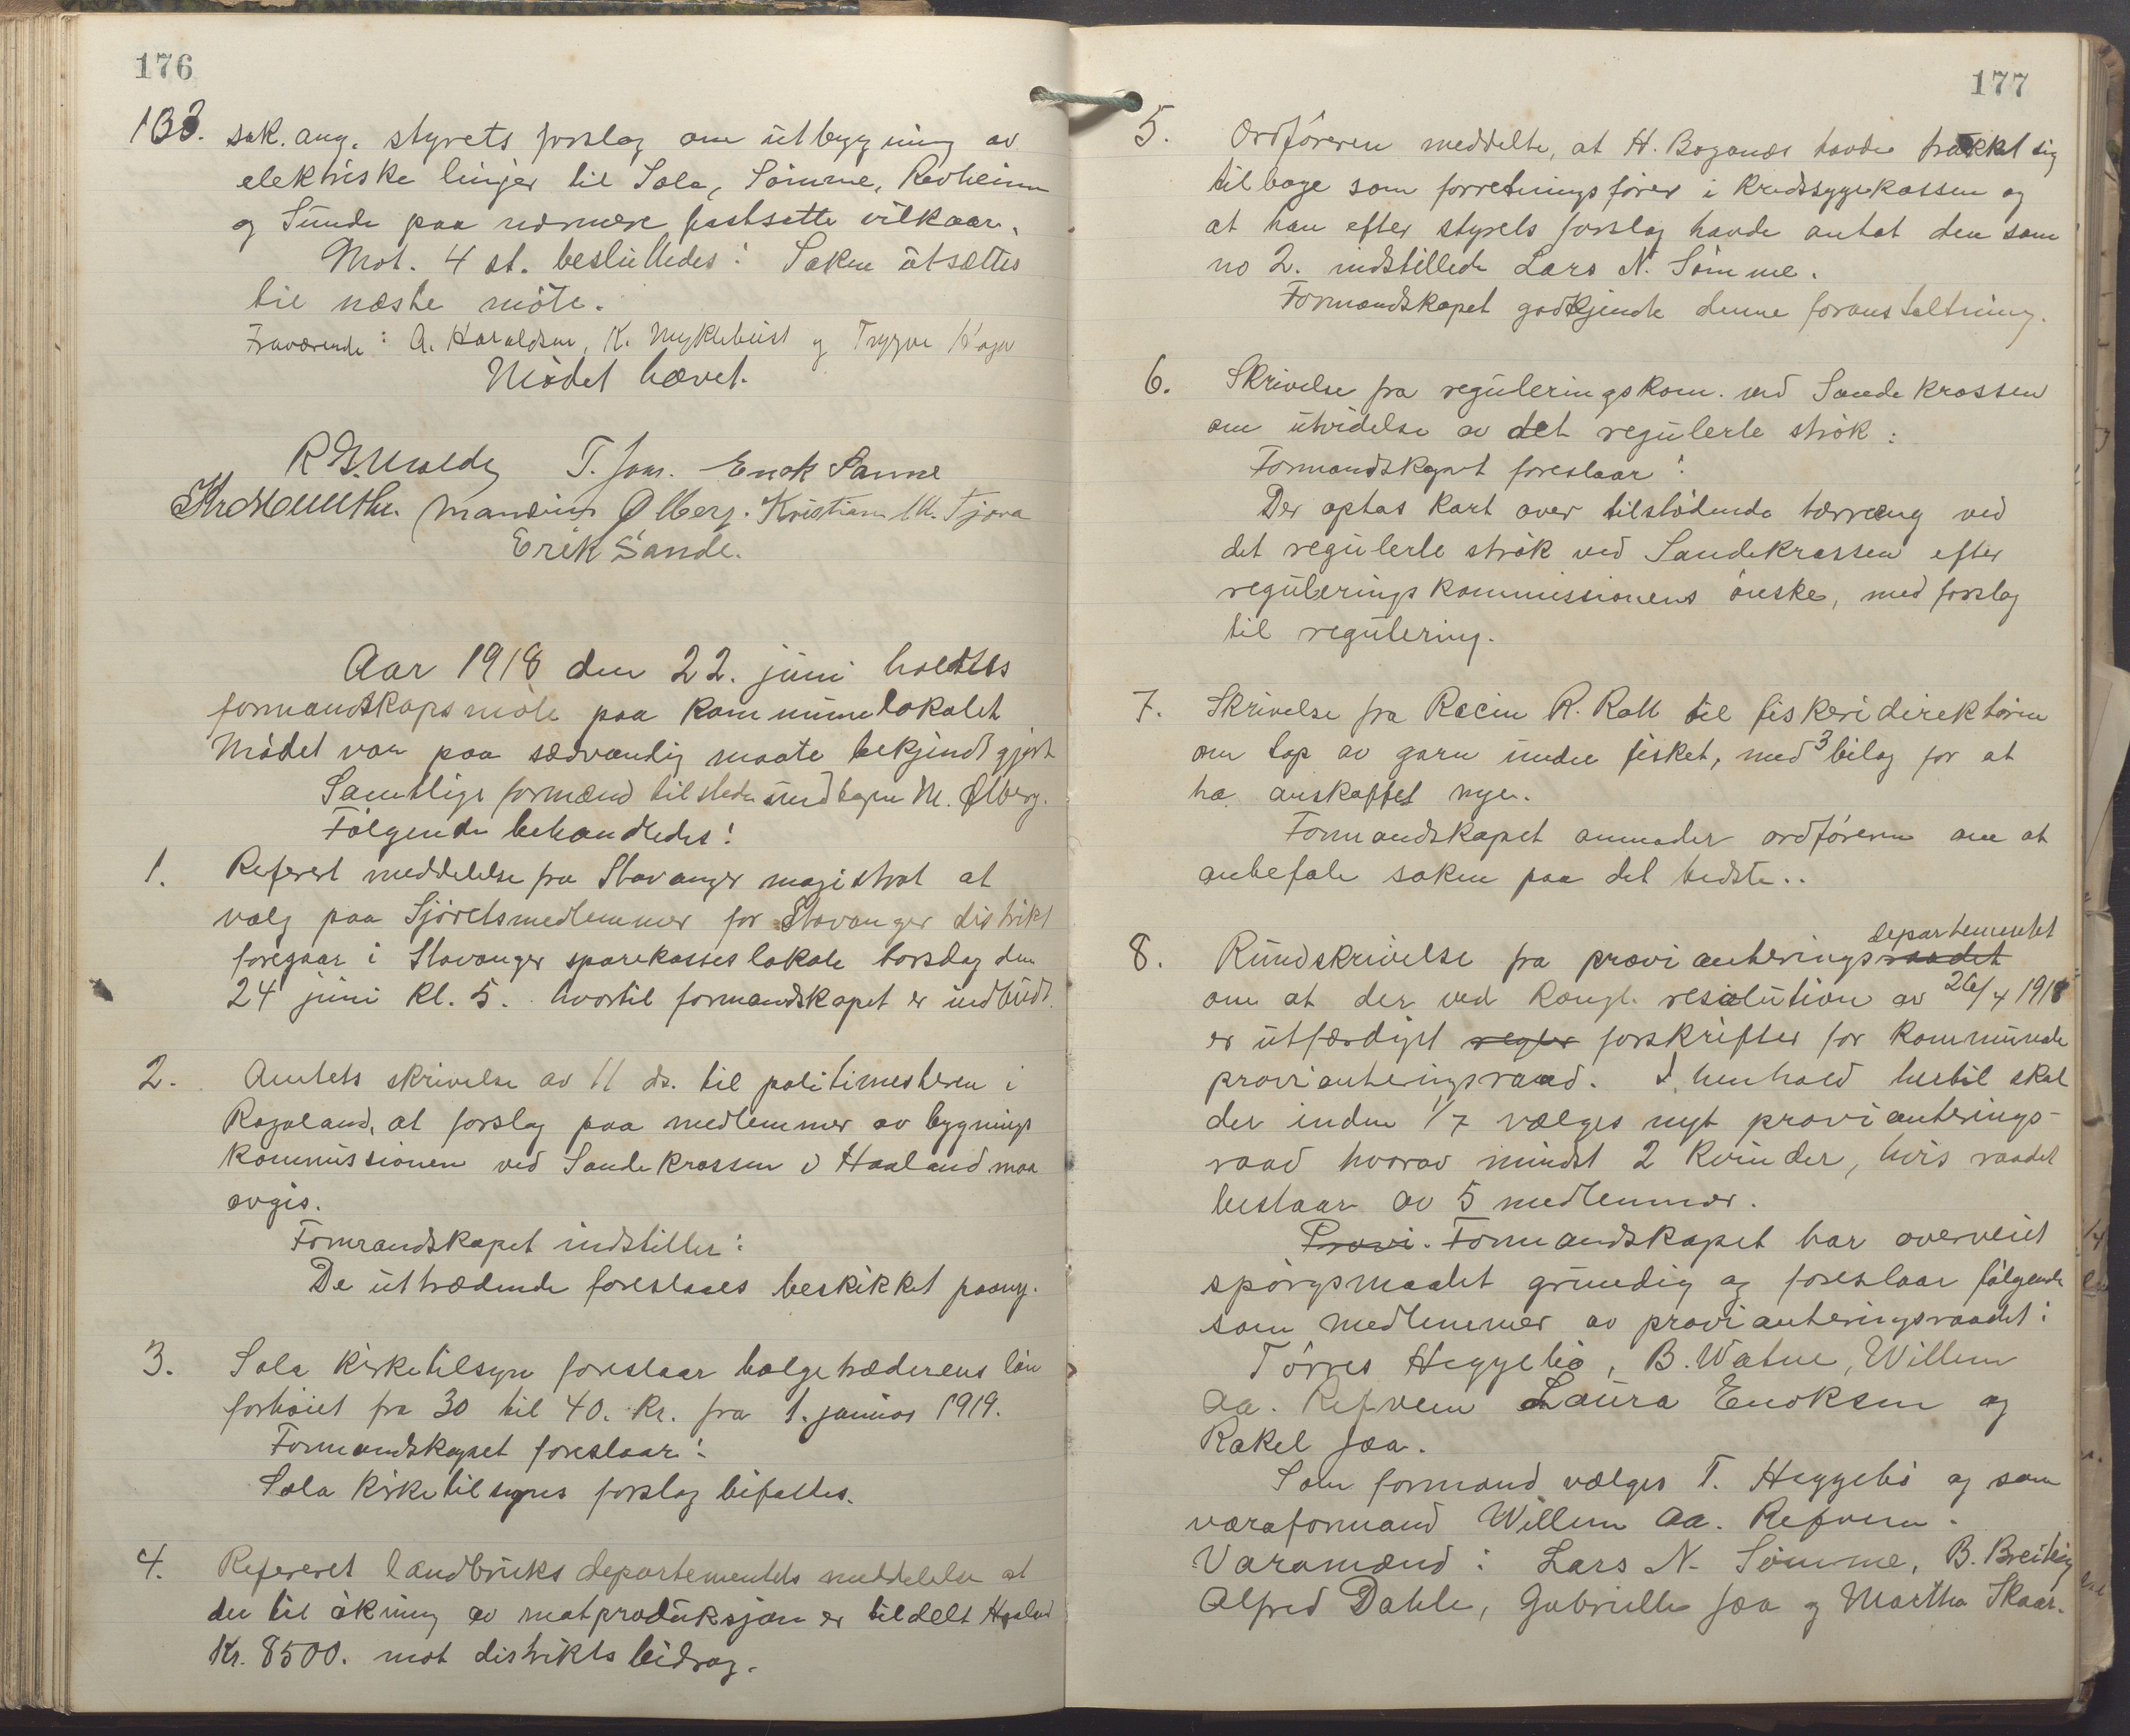 176
133. sak. ang. styrets forslag om utbygning av
elektriske linjer til Sola, Sømme, Revheim
og Sunde paa nærmere fastsatte vilkaar.
Mot. 4 st. besluttedes: Saken utsættes
til næste møte.
Fraværende: A. Haraldsen, K. Myklebust og Trygve
Mødet hævet.
T. Joa. Enok Sanne
Ølberg. Kristian M. Tjora
Erik Sande.
Aar 1918 den 22. juni holdtes
formandskapsmøte paa kommunelokalet
Mødet var paa sædvanlig maate bekjendtgjort
Samtlige formænd tilstede undtagen M. Ølberg.
Følgende behandledes:
1. Referert meddelelse fra Stavanger magistrat at
valg paa Sjøretsmedlemmer for Stavanger distrikt
foregaar i Stavanger sparekasses lokale torsdag den
24 juni kl. 5. hvortil formandskapet er indbudt.
2. Amtets skrivelse av 11 ds. til politimesteren i
Rogaland, at forslag paa medlemmer av bygnings
kommissionen ved Sandekrossen i Haaland maa
avgis.
Formandskapet indstiller:
De uttrædende foreslaaes beskikket paany.
3. Sola kirketilsyn foreslaar bælgetræderens løn
forhøiet fra 30 til 40. kr. fra 1. januar 1919.
Formandskapet foreslaar:
Sola kirketilsyns forslag bifaldes.
4. Refereret landbruksdepartementets meddelelse at
der til økning av matproduksjon er tildelt Haaland
Kr. 8500. mot distriktsbidrag.
177
5. Ordføreren meddelte, at H. Boganæs havde trukket sig
tilbage som forretningsfører i kredssygekassen og
at han efter styrets forslag havde antat den som
no 2. indstillede Lars N. Sømme.
Formandskapet godkjendte denne foranstaltning.
6. Skrivelse fra reguleringskom. ved Sandekrossen
om utvidelse av det regulerte strøk:
Formandskapet foreslaar:
Der optas kart over tilstødende terræng ved
det regulerte strøk ved Sandekrossen efter
reguleringskommissionens ønske, med forslag
til regulering.
7. Skrivelse fra Racin R. Rott til fiskeridirektøren
om tap av garn under fisket, med 3 bilag for at
ha anskaffet nye.
Formandskapet anmoder ordføreren om at
anbefale saken paa det bedste..
departementet
8. Rundskrivelse fra provianteringsraadet
om at der ved kongl. resolution av 26/4 1918
er utfærdiget regler forskrifter for kommunale
provianteringsraad. I henhold hertil skal
der inden 1/7 vælges nyt provianterings-
raad hvorav mindst 2 kvinder, hvis raadet
bestaar av 5 medlemmer.
Provi. Formandskapet har overveiet
spørgsmaalet grundig og foreslaar følgende
som medlemmer av provianteringsraadet:
Tørres Heggebø, B. Watne, Willem
Aa. Refvem Laura Enoksen og
Rakel Joa.
Som formand vælges T. Heggebø og som
varaformand Willem Aa. Refvem.
Varamænd: Lars N. Sømme, B.
Alfred Dahle, Gabrielle Joa og Martha Skaar.